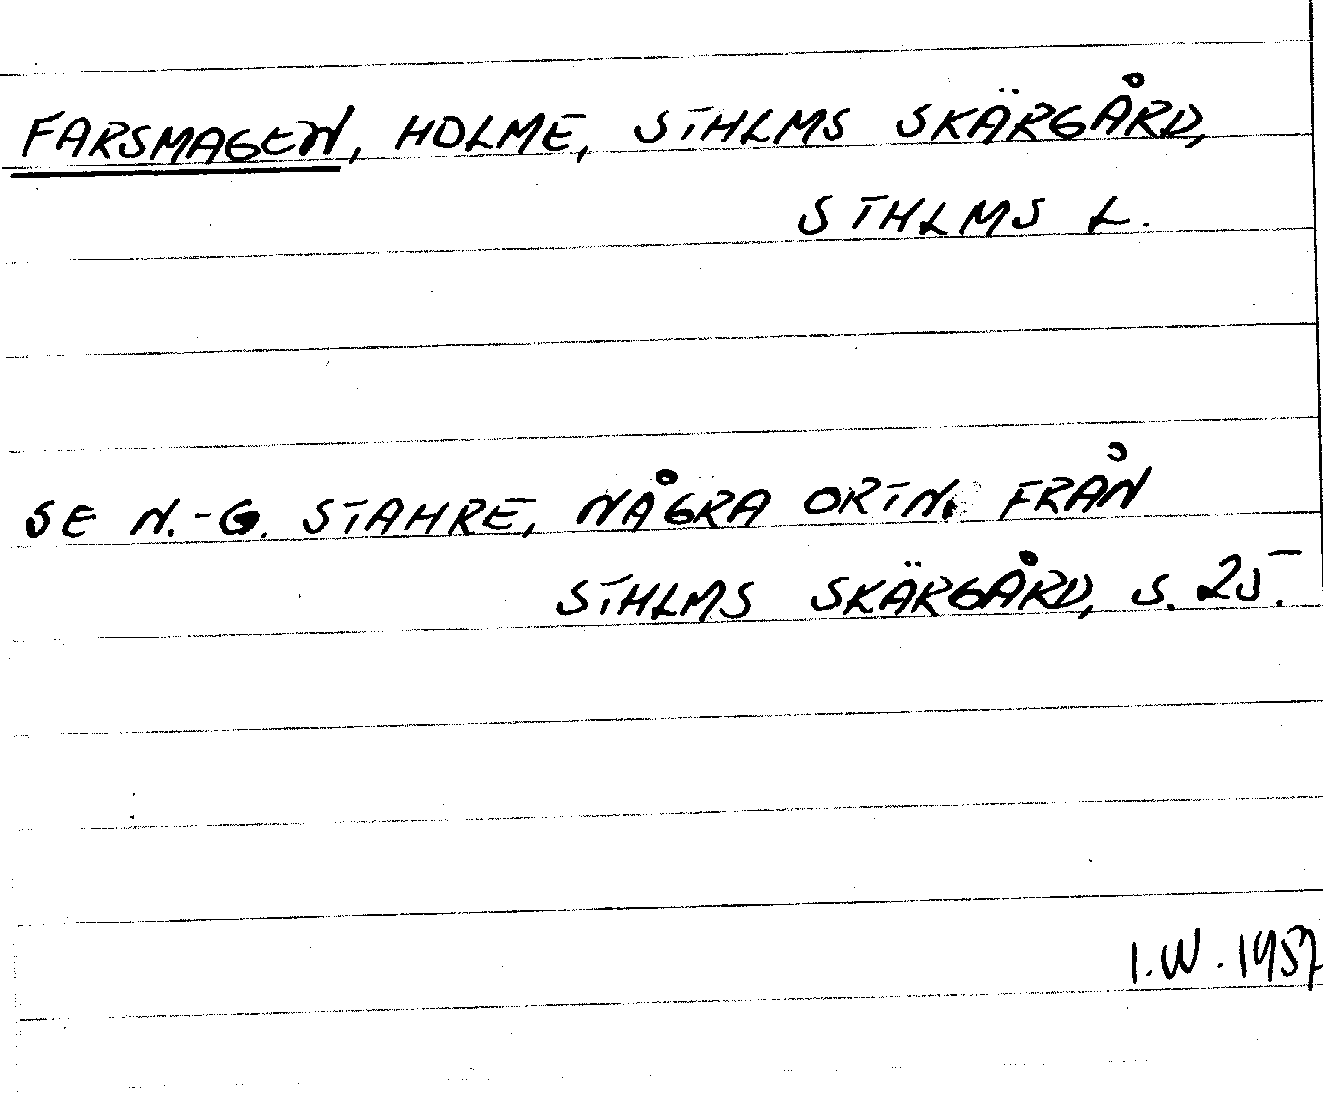 FARSMAGEN, HOLME, STHLMS SKÄRGÅRD,
STHLMS L.
SE N.-G. STAHRE, NÅGRA ORTN. FRÅN
STHLMS SKÄRGÅRD, S. 25.
I.W. 1957